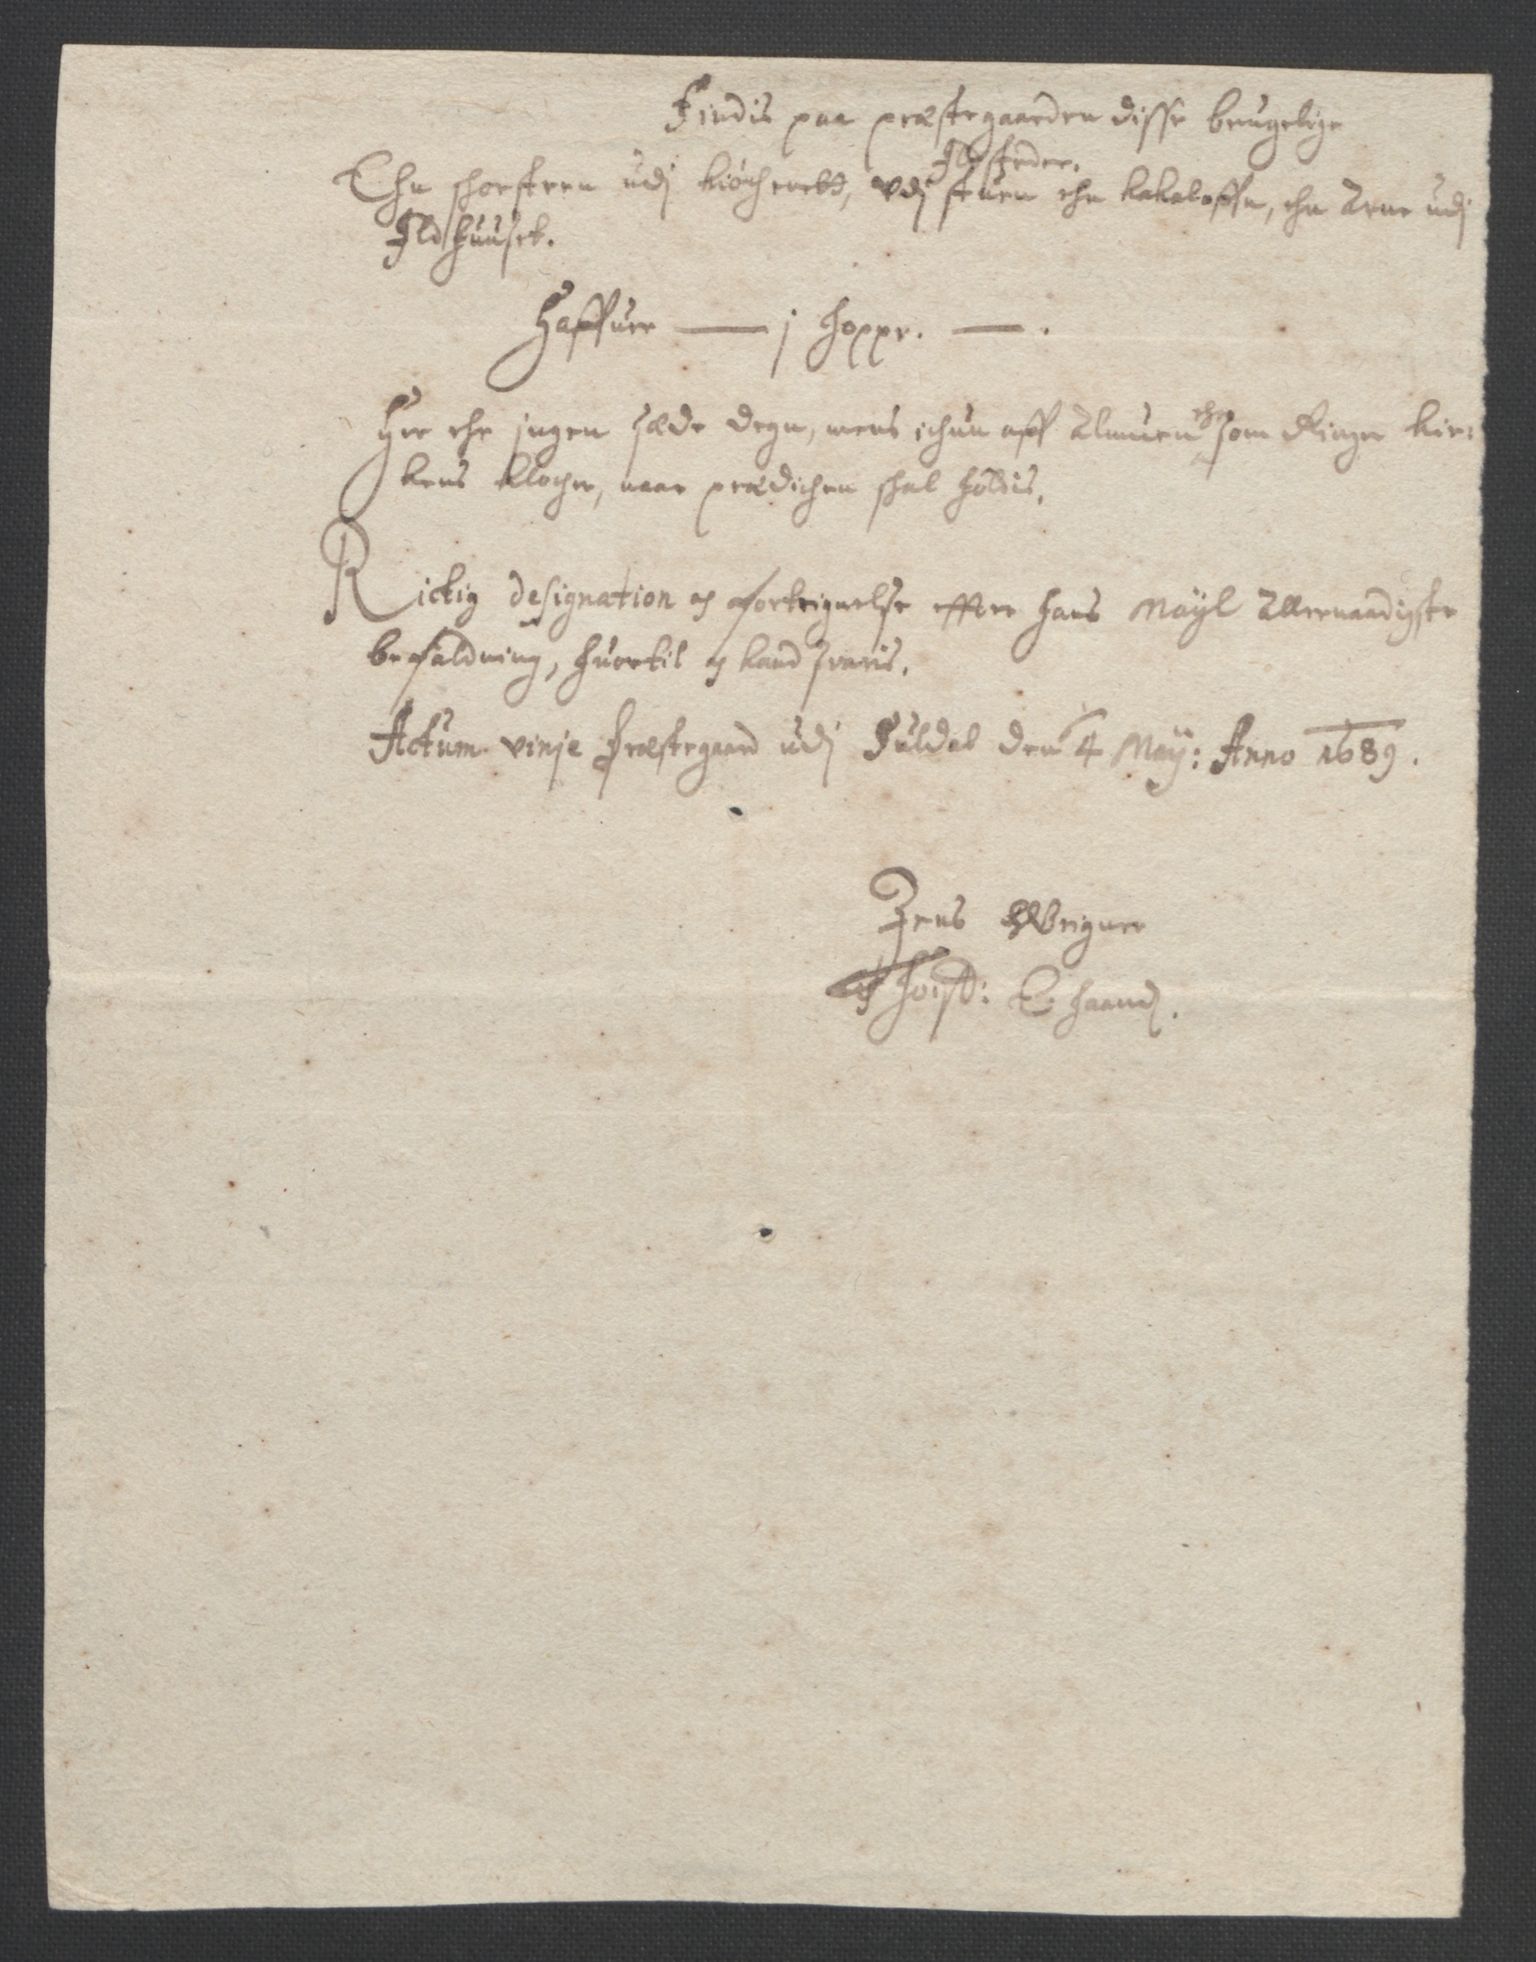 Findis paa præstegaarden disse brugelige
Ildsteder.
Ehn skorsteen udj kiøcheret, vdj stuen ehn kakeloffn, ehn Arne udj
Ildhuuset.
Haffuer — j hoppe. — .
Her ehr jngen sæde degn, mens ichun aff Almuen ehn som Ringer kir-
kens klocher, naar prædichen skal holdis.
Rictig designation og forteignelse effter hans Mayl Allernaadigste
befaldning, huortil og kand svaris.
Actum vinje Præstegaard udj Suldal den 4 May: Anno 1689.
Jens
E haand.